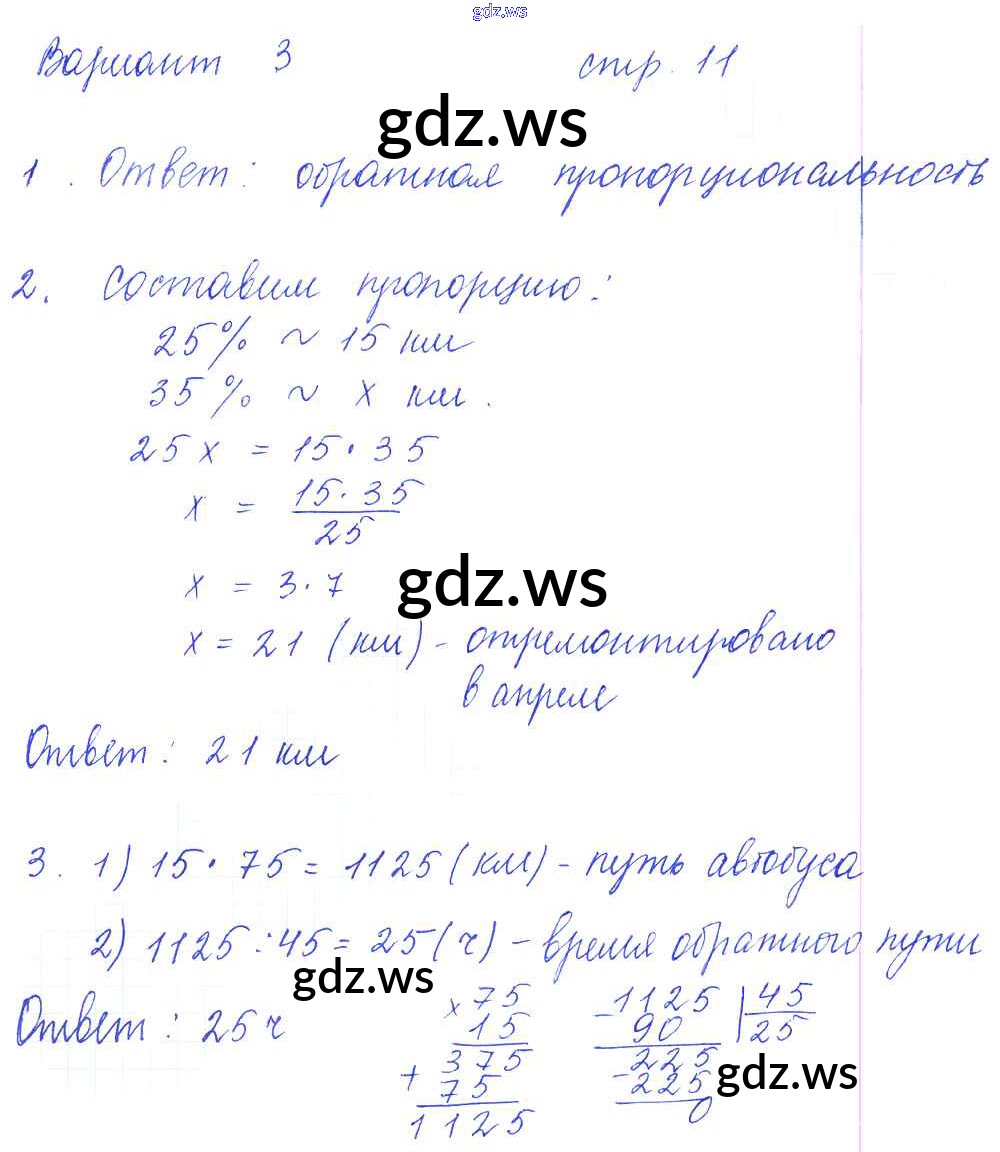 gdz.ws
Вариант 3 стр. 11
gdz.ws
1. Ответ: обратная пропорциональность
2. Составим пропорцию:
25% ~ 15 км
35% ~ x км.
25x = 15·35
x = 15·35/25
gdz.ws
x = 3·7
x = 21 (км) - отремонтировано
в апреле
Ответ: 21 км
3. 1) 15·75 = 1125 (км) - путь автобуса
2) 1125:45 = 25 (ч) - время обратного пути
gdz.ws
Ответ: 25ч
× 75
15
+ 375
75
1125
- 1125 | 45
90 25
- 225
225
0
gdz.ws